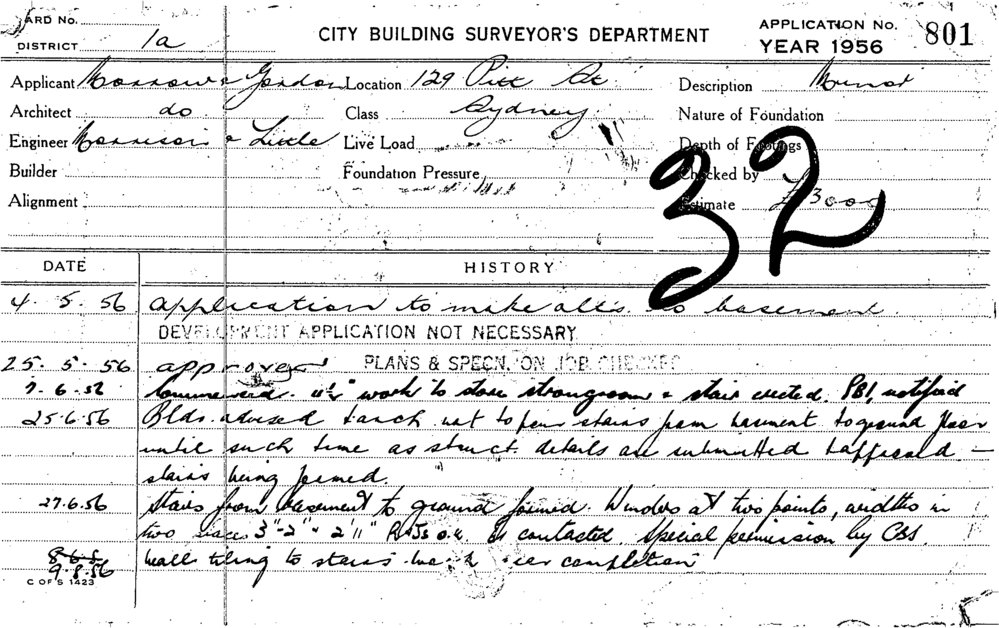 ARD No.
DISTRICT 1a
CITY BUILDING SURVEYOR'S DEPARTMENT
APPLICATION No. 801
YEAR 1956
Applicant Morrow & Gordon Location 129 Pitt St Description Minor
Architect do Class Sydney Nature of Foundation
Engineer Morrison & Little Live Load Depth of Footings
Builder Foundation Pressure Checked by
Alignment Estimate £3000
32
DATE HISTORY
4. 5. 56 Application to make alts. to basement
DEVELOPMENT APPLICATION NOT NECESSARY
25. 5. 56 approved PLANS & SPECN. ON JOB CHECKED
7. 6. 56 Commenced. work to store strongroom & stair erected. notified
25.6.56 Bldr. advised & arch not to form stairs from basement to ground floor
until such time as struct. details are submitted & approved –
stairs being formed.
27.6.56 Stairs from basement to ground formed. Winders at two points, widths in
two 3"-2" & 2'11" contacted. Special permission by CBS.
8.6.5
9.8.56 Wall tiling to stairs near completion
C OF S 1423